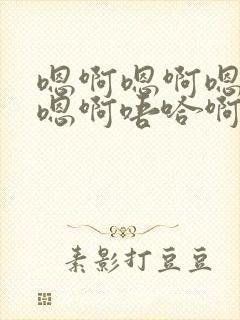 嗯啊嗯啊嗯
嗯啊唔哈啊
素影打豆豆